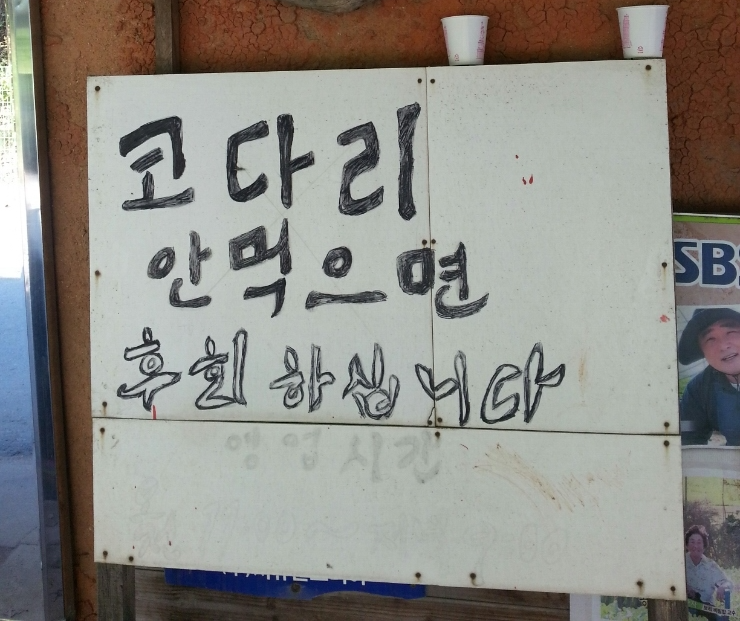 코다리
안먹으면
후회하십니다
영업시간
SBS